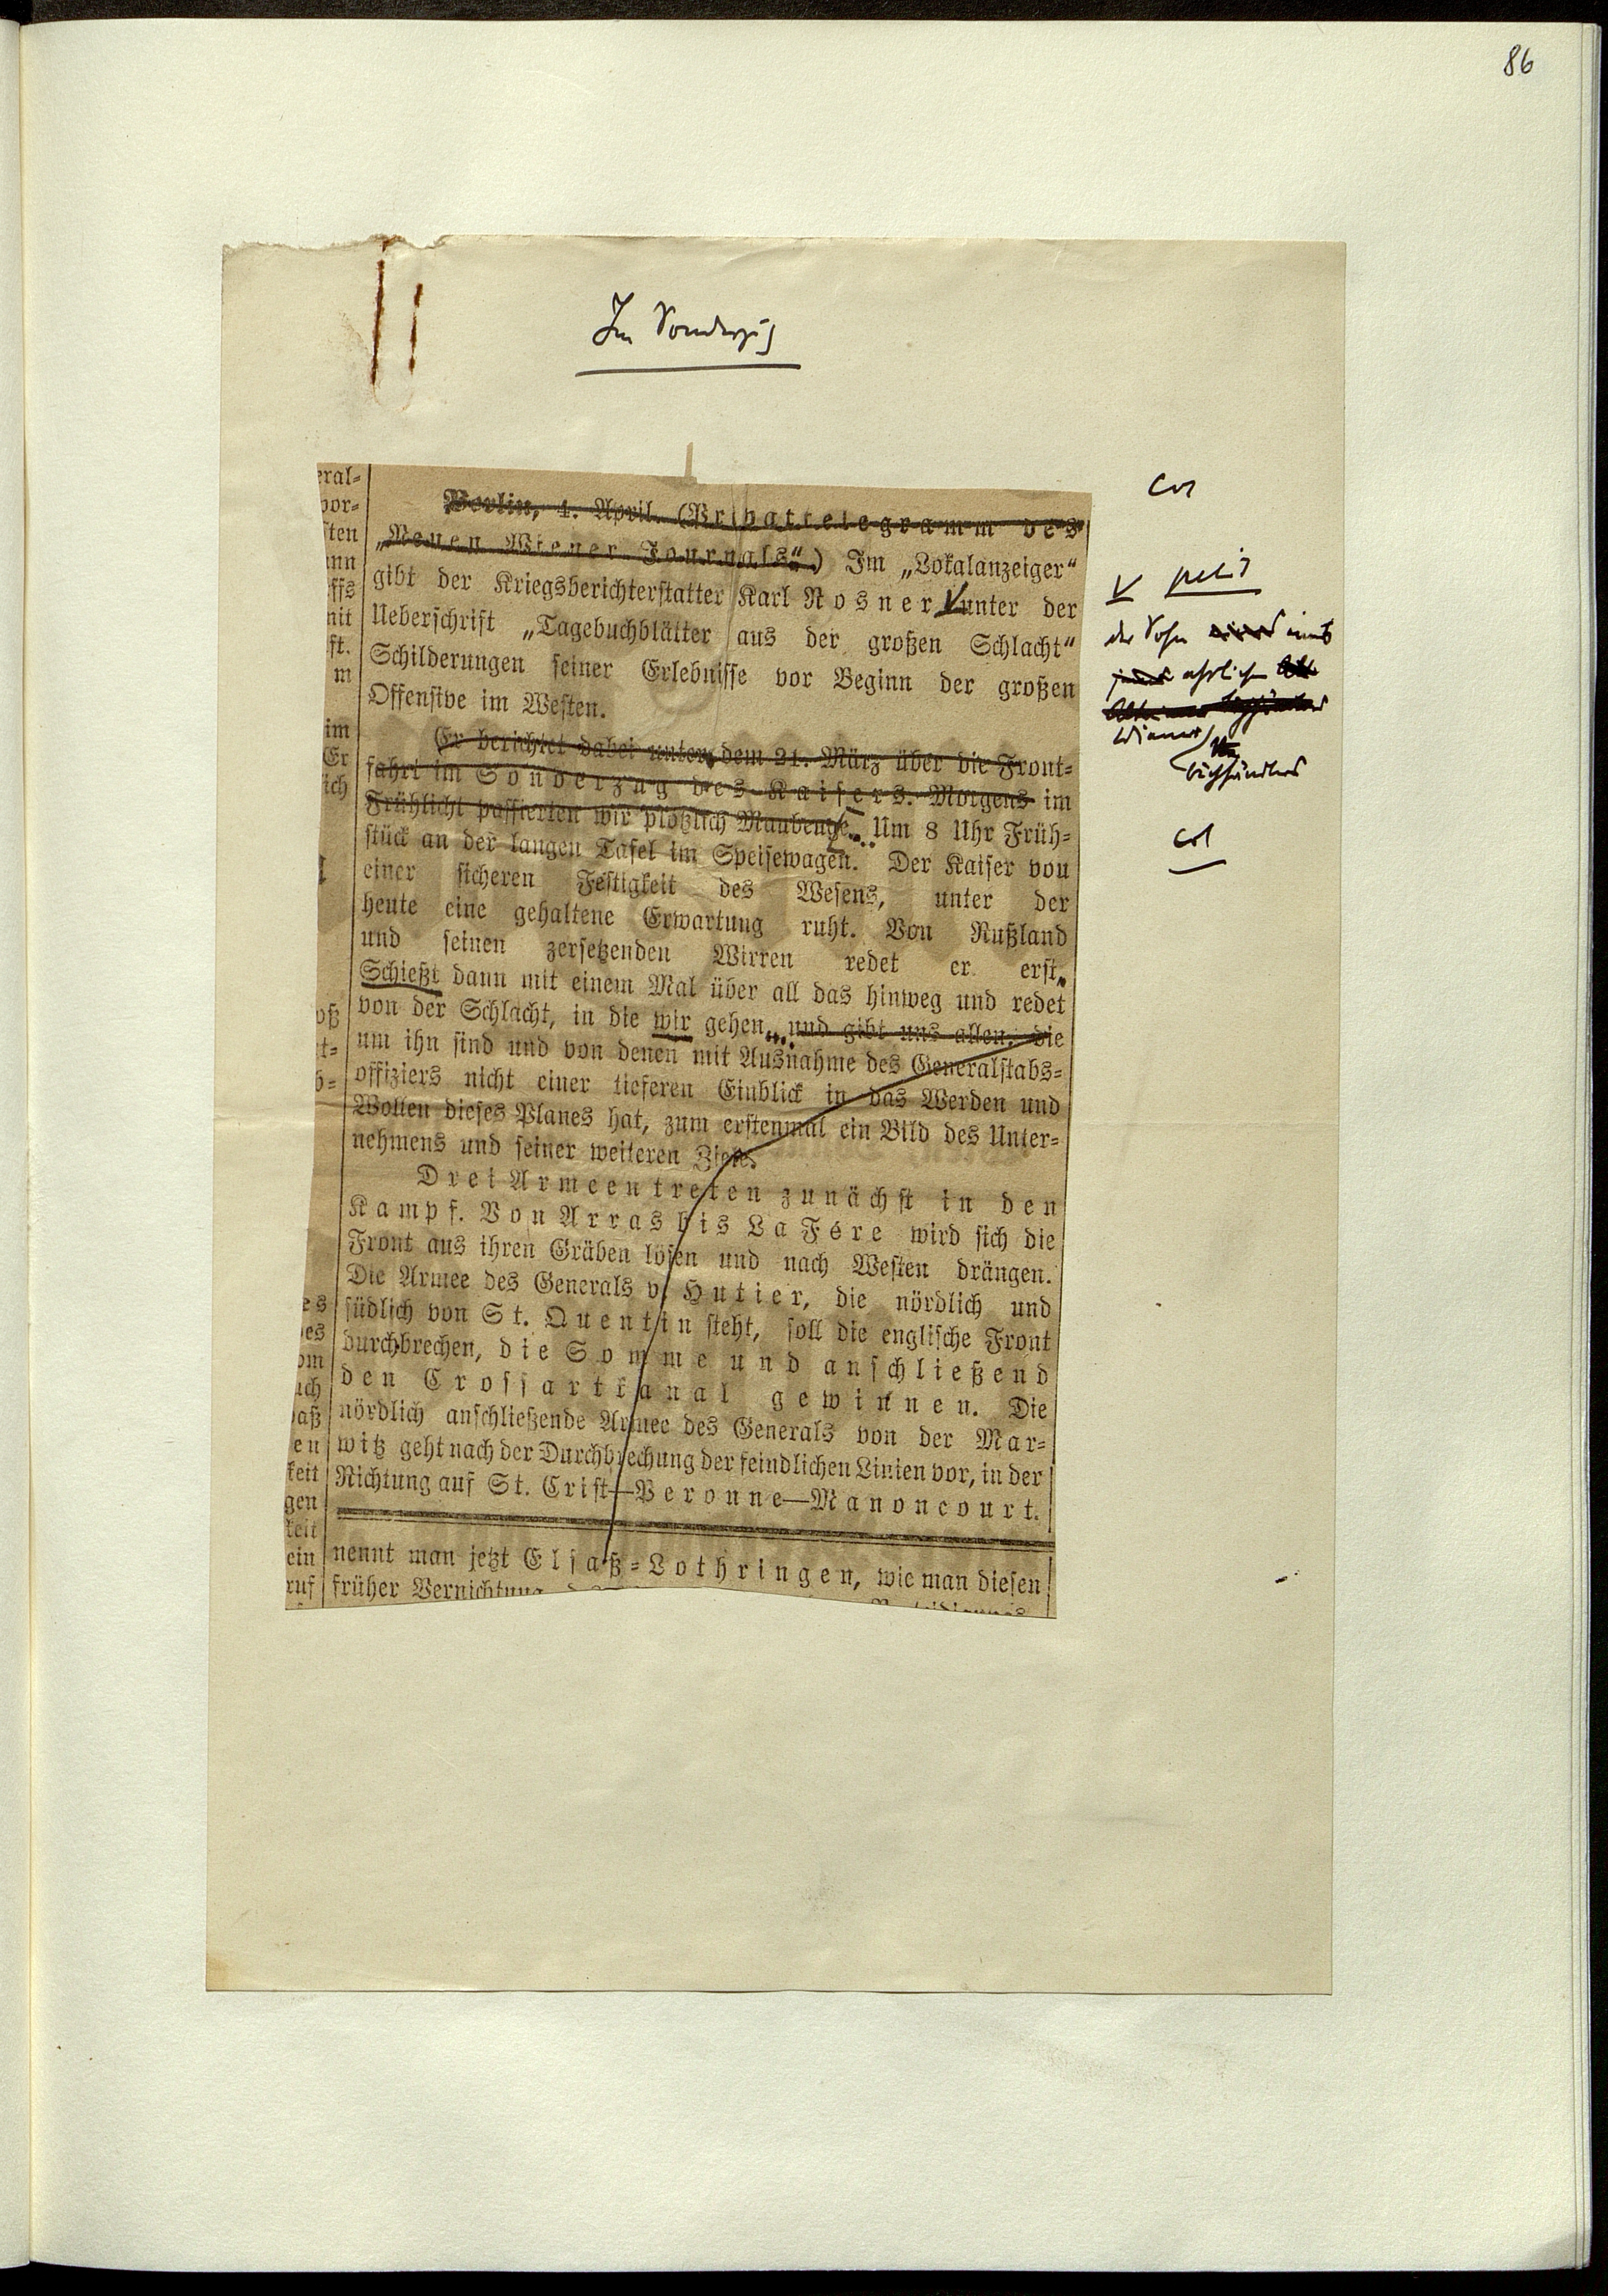 86
Im Sonderzug
Berlin, 4. April. (Privattelegramm des
„Neuen Wiener Journals“.) Im „Lokalanzeiger“
gibt der Kriegsberichterstatter Karl Rosner unter der
Ueberschrift „Tagebuchblätter aus der großen Schlacht“
Schilderungen seiner Erlebnisse vor Beginn der großen
Offensive im Westen.
Er berichtet dabei unter dem 21. März über die Front-
fahrt im Sonderzug des Kaisers. Morgens im
Frühlicht passierten wir plötzlich Maubeuge. Um 8 Uhr Früh-
stück an der langen Tafel im Speisewagen. Der Kaiser von
einer sicheren Festigkeit des Wesens, unter der
heute eine gehaltene Erwartung ruht. Von Rußland
und seinen zersetzenden Wirren redet er erst.
Schießt dann mit einem Mal über all das hinweg und redet
von der Schlacht, in die wir gehen, und gibt uns allen, die
um ihn sind und von denen mit Ausnahme des Generalstabs-
offiziers nicht einer tieferen Einblick in das Werden und
Wollen dieses Planes hat, zum erstenmal ein Bild des Unter-
nehmens und seiner weiteren Ziele.
Drei Armeen treten zunächst in den
Kampf. Von Arras bis La Fère wird sich die
Front aus ihren Gräben lösen und nach Westen drängen.
Die Armee des Generals v. Hutier, die nördlich und
südlich von St. Quentin steht, soll die englische Front
durchbrechen, die Somme und anschließend
den Crossartkanal gewinnen. Die
nördlich anschließende Armee des Generals von der Mar-
witz geht nach der Durchbrechung der feindlichen Linien vor, in der
Richtung auf St. Crist—Peronne—Manoncourt.
nennt man jetzt Elsaß-Lothringen, wie man diesen
früher Vernichtung
eral-
vor-
ften
ann
ffs
mit
ft.
m
im
Er
ich
oß
t-
b-
es
es
om
uch
aß
en
keit
gen
keit
ein
ruf
V petit
der Sohn eines
ehrlichen
Wiener
Buchhändlers